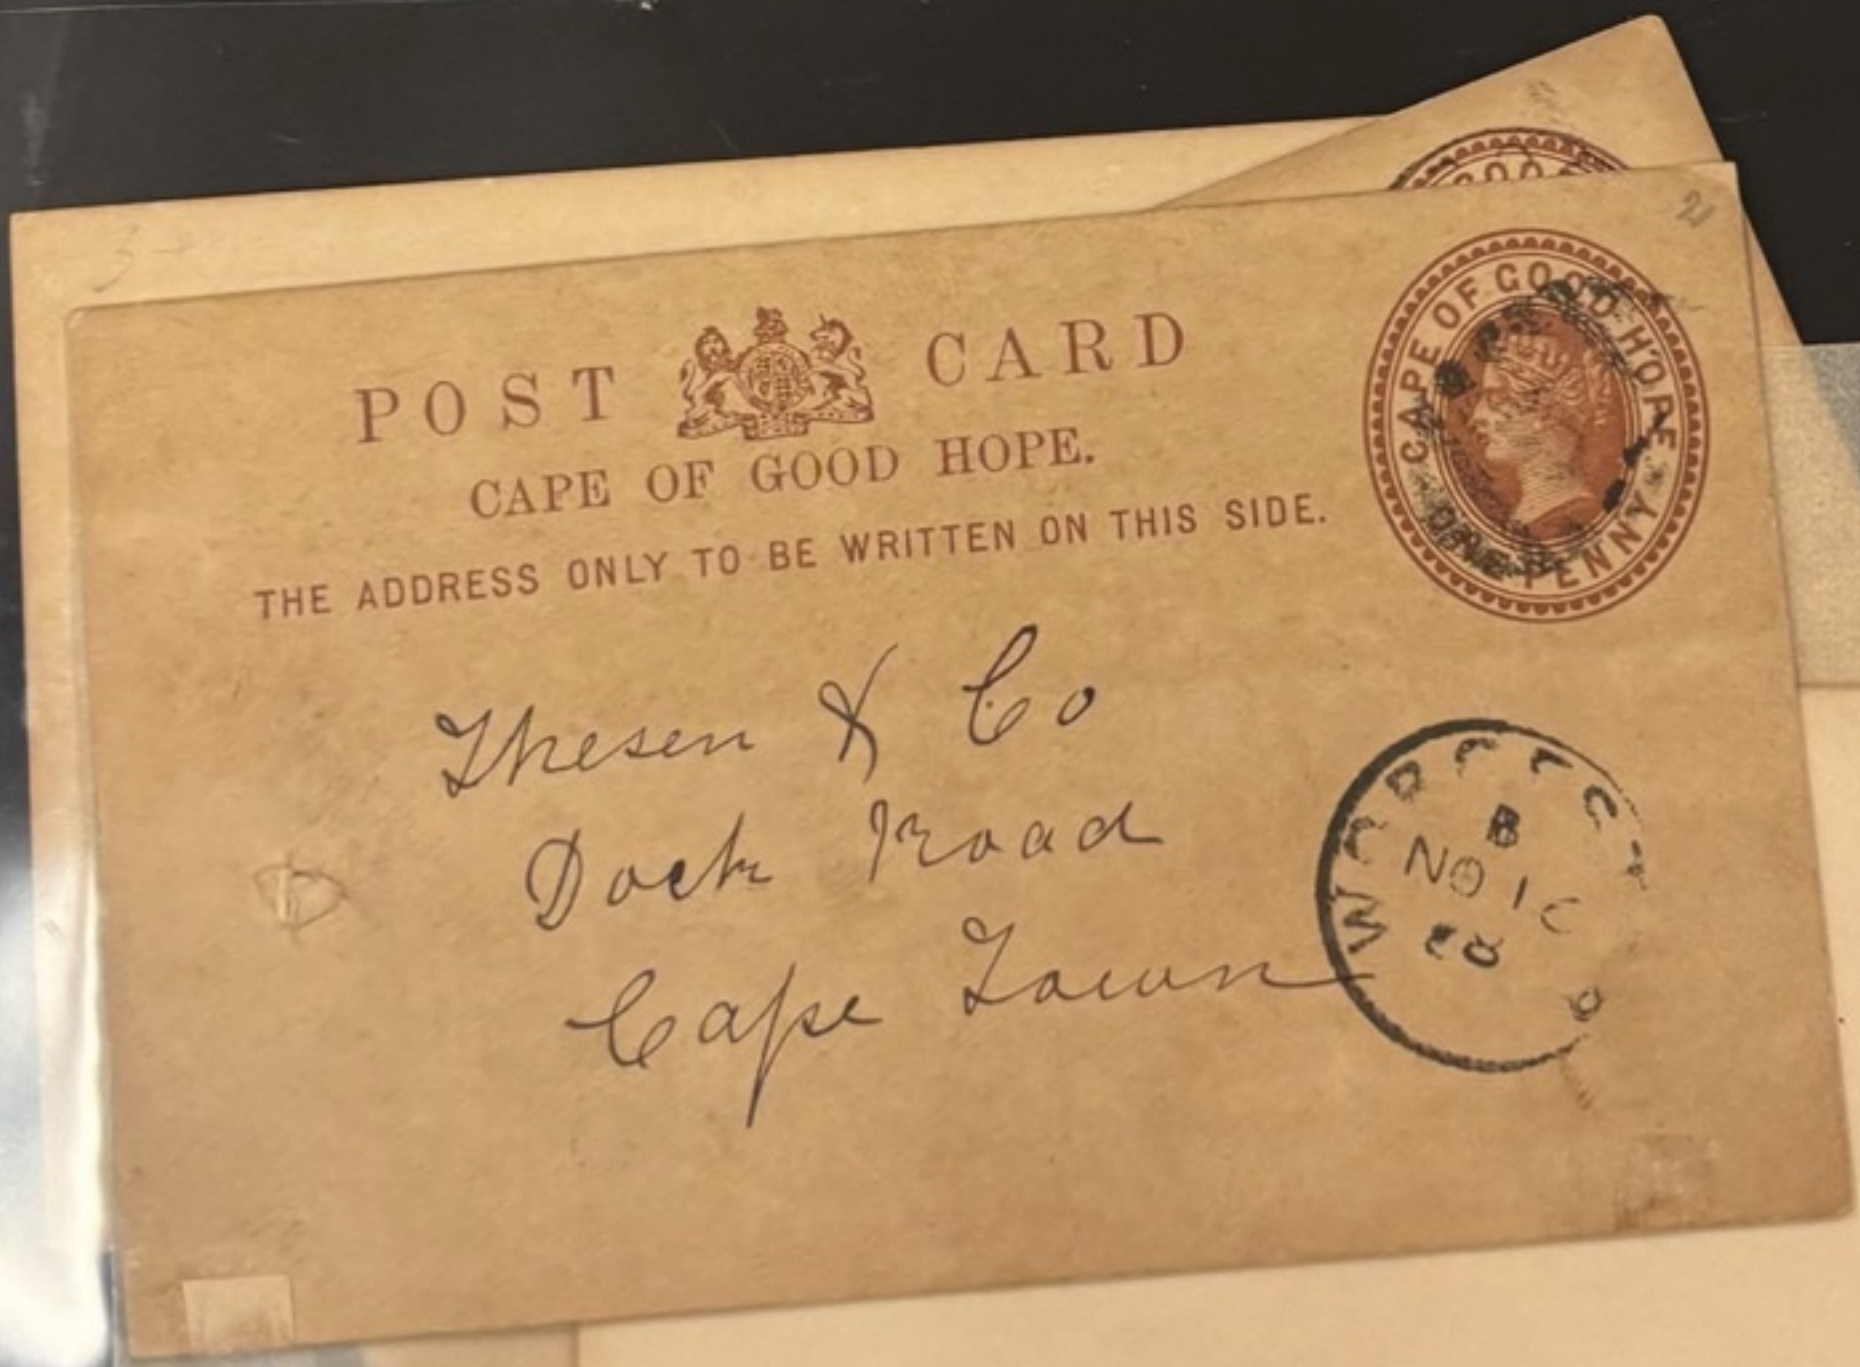 2
POST CARD
CAPE OF GOOD HOPE.
THE ADDRESS ONLY TO BE WRITTEN ON THIS SIDE.
CAPE OF GOOD HOPE
ONE PENNY
Thesen & Co
Dock Road
Cape Town
B
NO 10